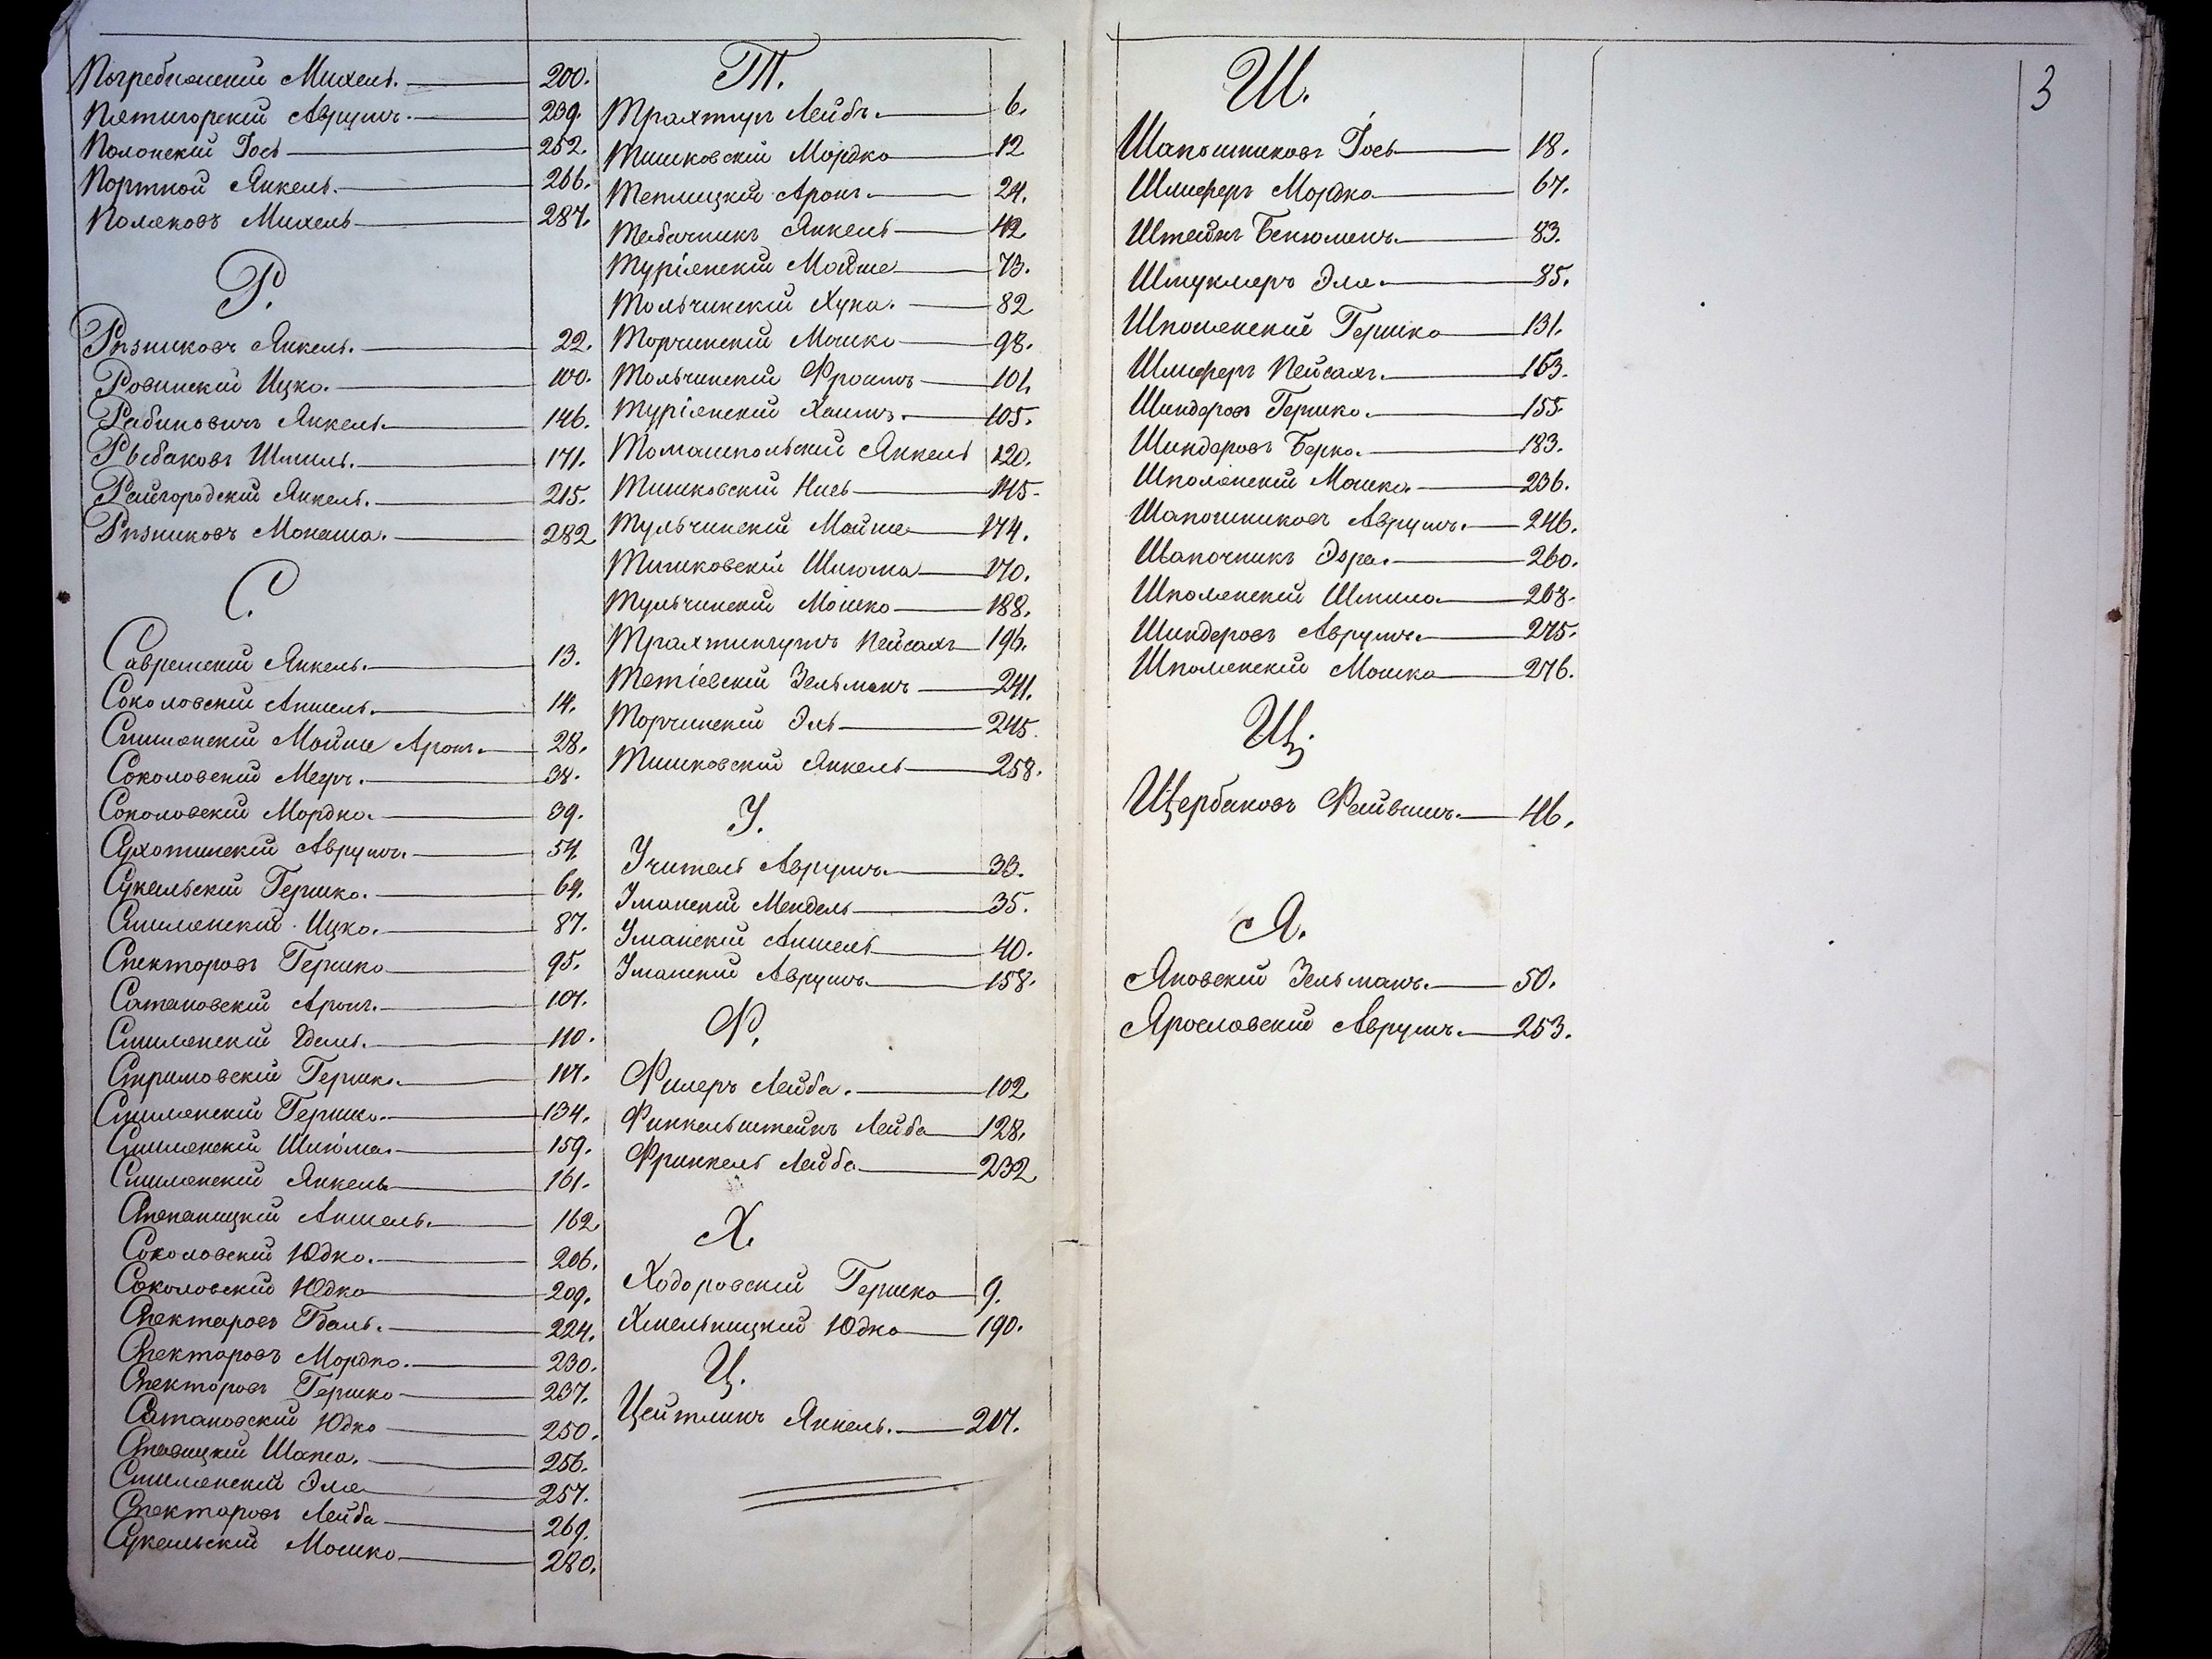 Погребиженскій Михель. 200.
Пятигорскій Аврумъ. 239.
Полонскій Іось 252.
Портной Янкель. 266.
Поляковъ Михель 287.
Р.
Рѣзниковъ Янкель. 22.
Ровинскій Ицко. 100.
Рабиновичъ Янкель. 146.
Рыбаковъ Шмиль. 171.
Райгородскій Янкель. 215.
Рѣзниковъ Монаша. 282
С.
Савранскій Янкель. 13.
Соколовскій Аншель. 14.
Смилянскій Мойше Аронъ. 28.
Соколовскій Мееръ. 34.
Соколовскій Мордко. 39.
Сухотинскій Аврумъ. 54.
Сукальскій Гершко. 64.
Смилянскій Ицко. 87.
Спекторовъ Гершко 95.
Сатановскій Аронъ. 104.
Смилянскій 110.
Гершко 117.
Смилянскій Гершко. 134.
Смилянскій Шлюма. 159.
Смилянскій Янкель 161.
Степаницкій Аншель. 162.
Соколовскій Юдко. 206.
Соколовскій Юдко 209.
Спекторовъ Гдаль. 224.
Спекторовъ Мордко. 230.
Спекторовъ Гершко 237.
Сатановскій Юдко 250.
256.
Смилянскій Эля 257.
Спекторовъ Лейба 269.
Сукальскій Мошко 280.
Т.
Трахтунъ Лейбъ. 6.
Тишковскій Мордко 12
Теплицкій Аронъ. 24.
Табачникъ Янкель 42
Туріянскій Мойше 73.
Тольчинскій Хуна. 82
Торчинскій Мошко 98.
Тольчинскій Фроимъ 101.
Туріянскій Хаимъ. 105.
Томашпольскій Янкель 120.
Тишковскій Нись 145.
Тульчинскій Мойше 174.
Тишковскій Шлюма 170.
Тульчинскій Мошко 188.
Пейсахъ 196.
Тетіевскій Зельманъ 241.
Торчинскій Эль 245.
Тишковскій Янкель 258.
У.
Учитель Аврумъ. 33.
Уманскій Мендель 35.
Уманскій Аншель 40.
Уманскій Аврумъ. 158.
Ф.
Филеръ Лейба. 102
Финкельштейнъ Лейба 128.
Френкель Лейба 232
Х.
Ходоровскій Гершко 9.
Хмельницкій Юдко 190.
Ц.
Цейтлинъ Янкель. 217.
3
Ш.
Шапошниковъ Іось 18.
Шлиферъ Мордко 67.
Штейнъ Беньюминъ. 83.
Шмуклеръ Эля. 85.
Шполянскій Гершко 131.
Шлиферъ Пейсахъ. 153.
Шиндеровъ Гершко. 155.
Шиндеровъ Берко. 183.
Шполянскій Мошко. 236.
Шапошниковъ Аврумъ. 246.
Шапочникъ Эзра. 260.
Шполянскій Шмила 268.
Шиндеровъ Аврумъ. 275.
Шполянскій Мошко 276.
Щ.
Щербаковъ Файвишъ. 46.
Я.
Яновскій Зельманъ. 50.
Ярославскій Аврумъ. 253.